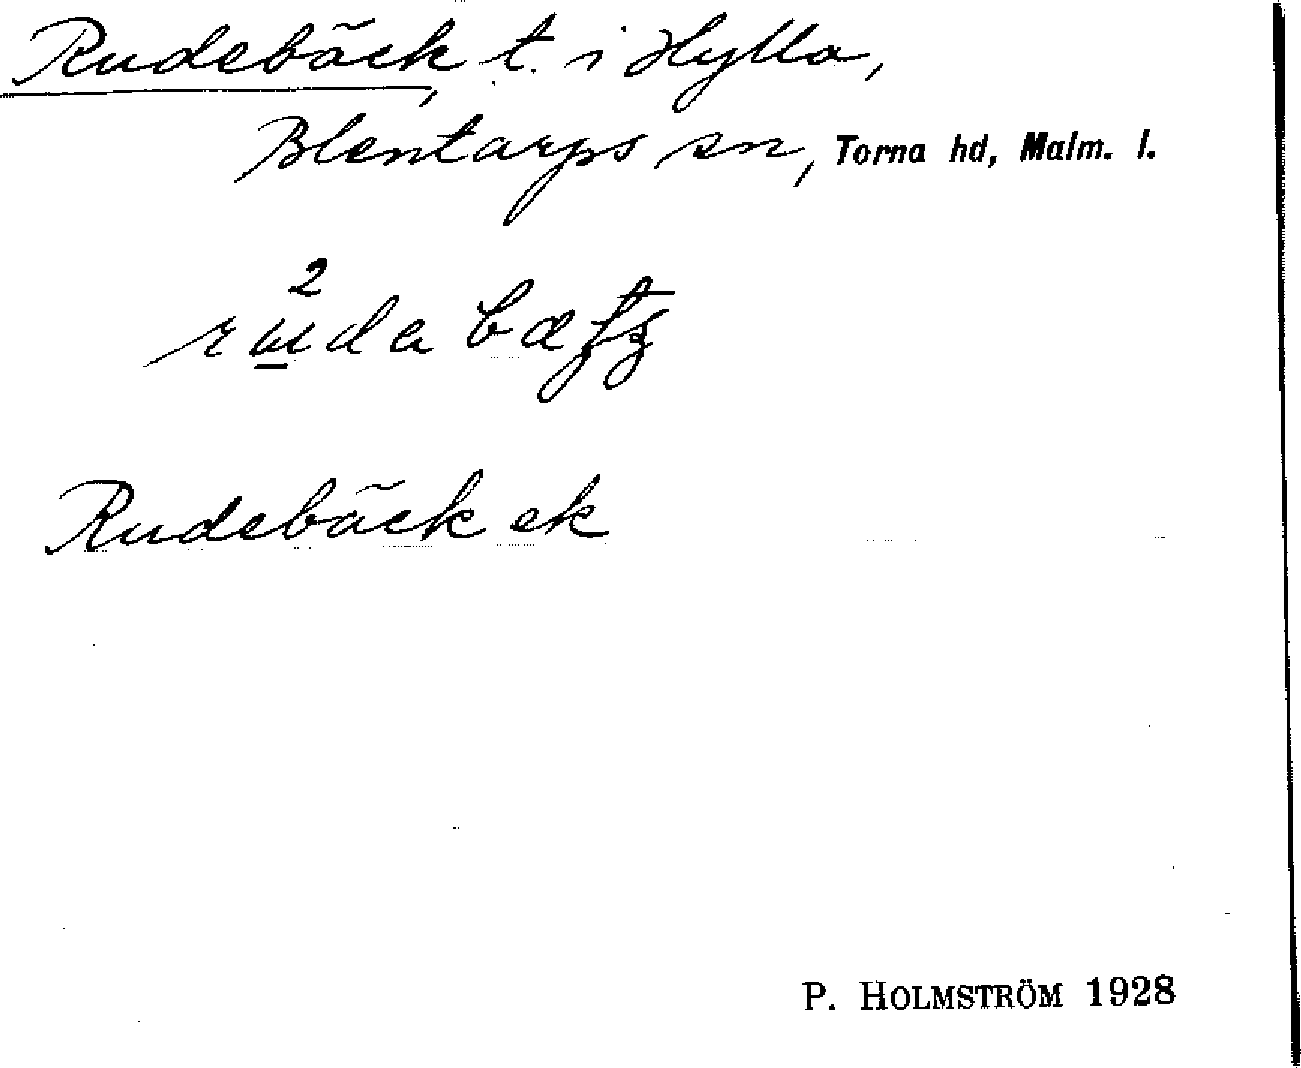 Rudebäck, t. i Hylla,
Blentarps sn, Torna hd, Malm. l.
Rudebäck ek
P. HOLMSTRÖM 1928